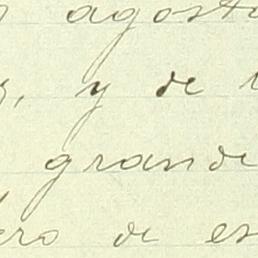 agosto
, y de
grande
ero de es